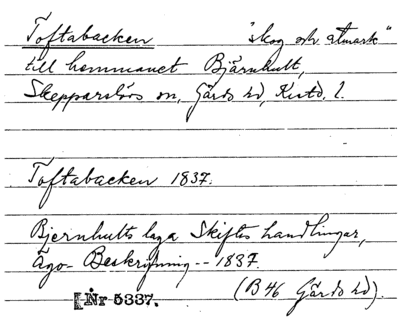 Toftabacken "skog och utmark"
till hemmanet Bjärnhult,
Skepparslövs sn, Gärds hd, Kristd. l.
Toftabacken 1837.
Bjernhults laga Skiftes handlingar,
Ägo-Beskrifning -- 1837.
(B 46 Gärds hd).
Nr 5337.